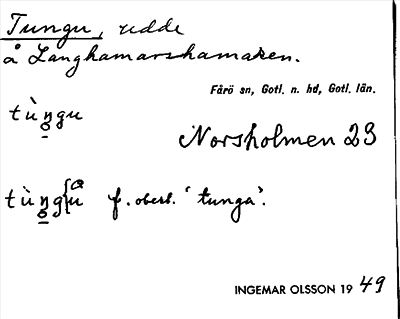 Tungu, udde
å Langhamarshamaren.
Fårö sn, Gotl. n. hd, Gotl. län.
tùŋgu
Norsholmen 23
tùŋg{u f. oberl. 'tunga'.
INGEMAR OLSSON 1949